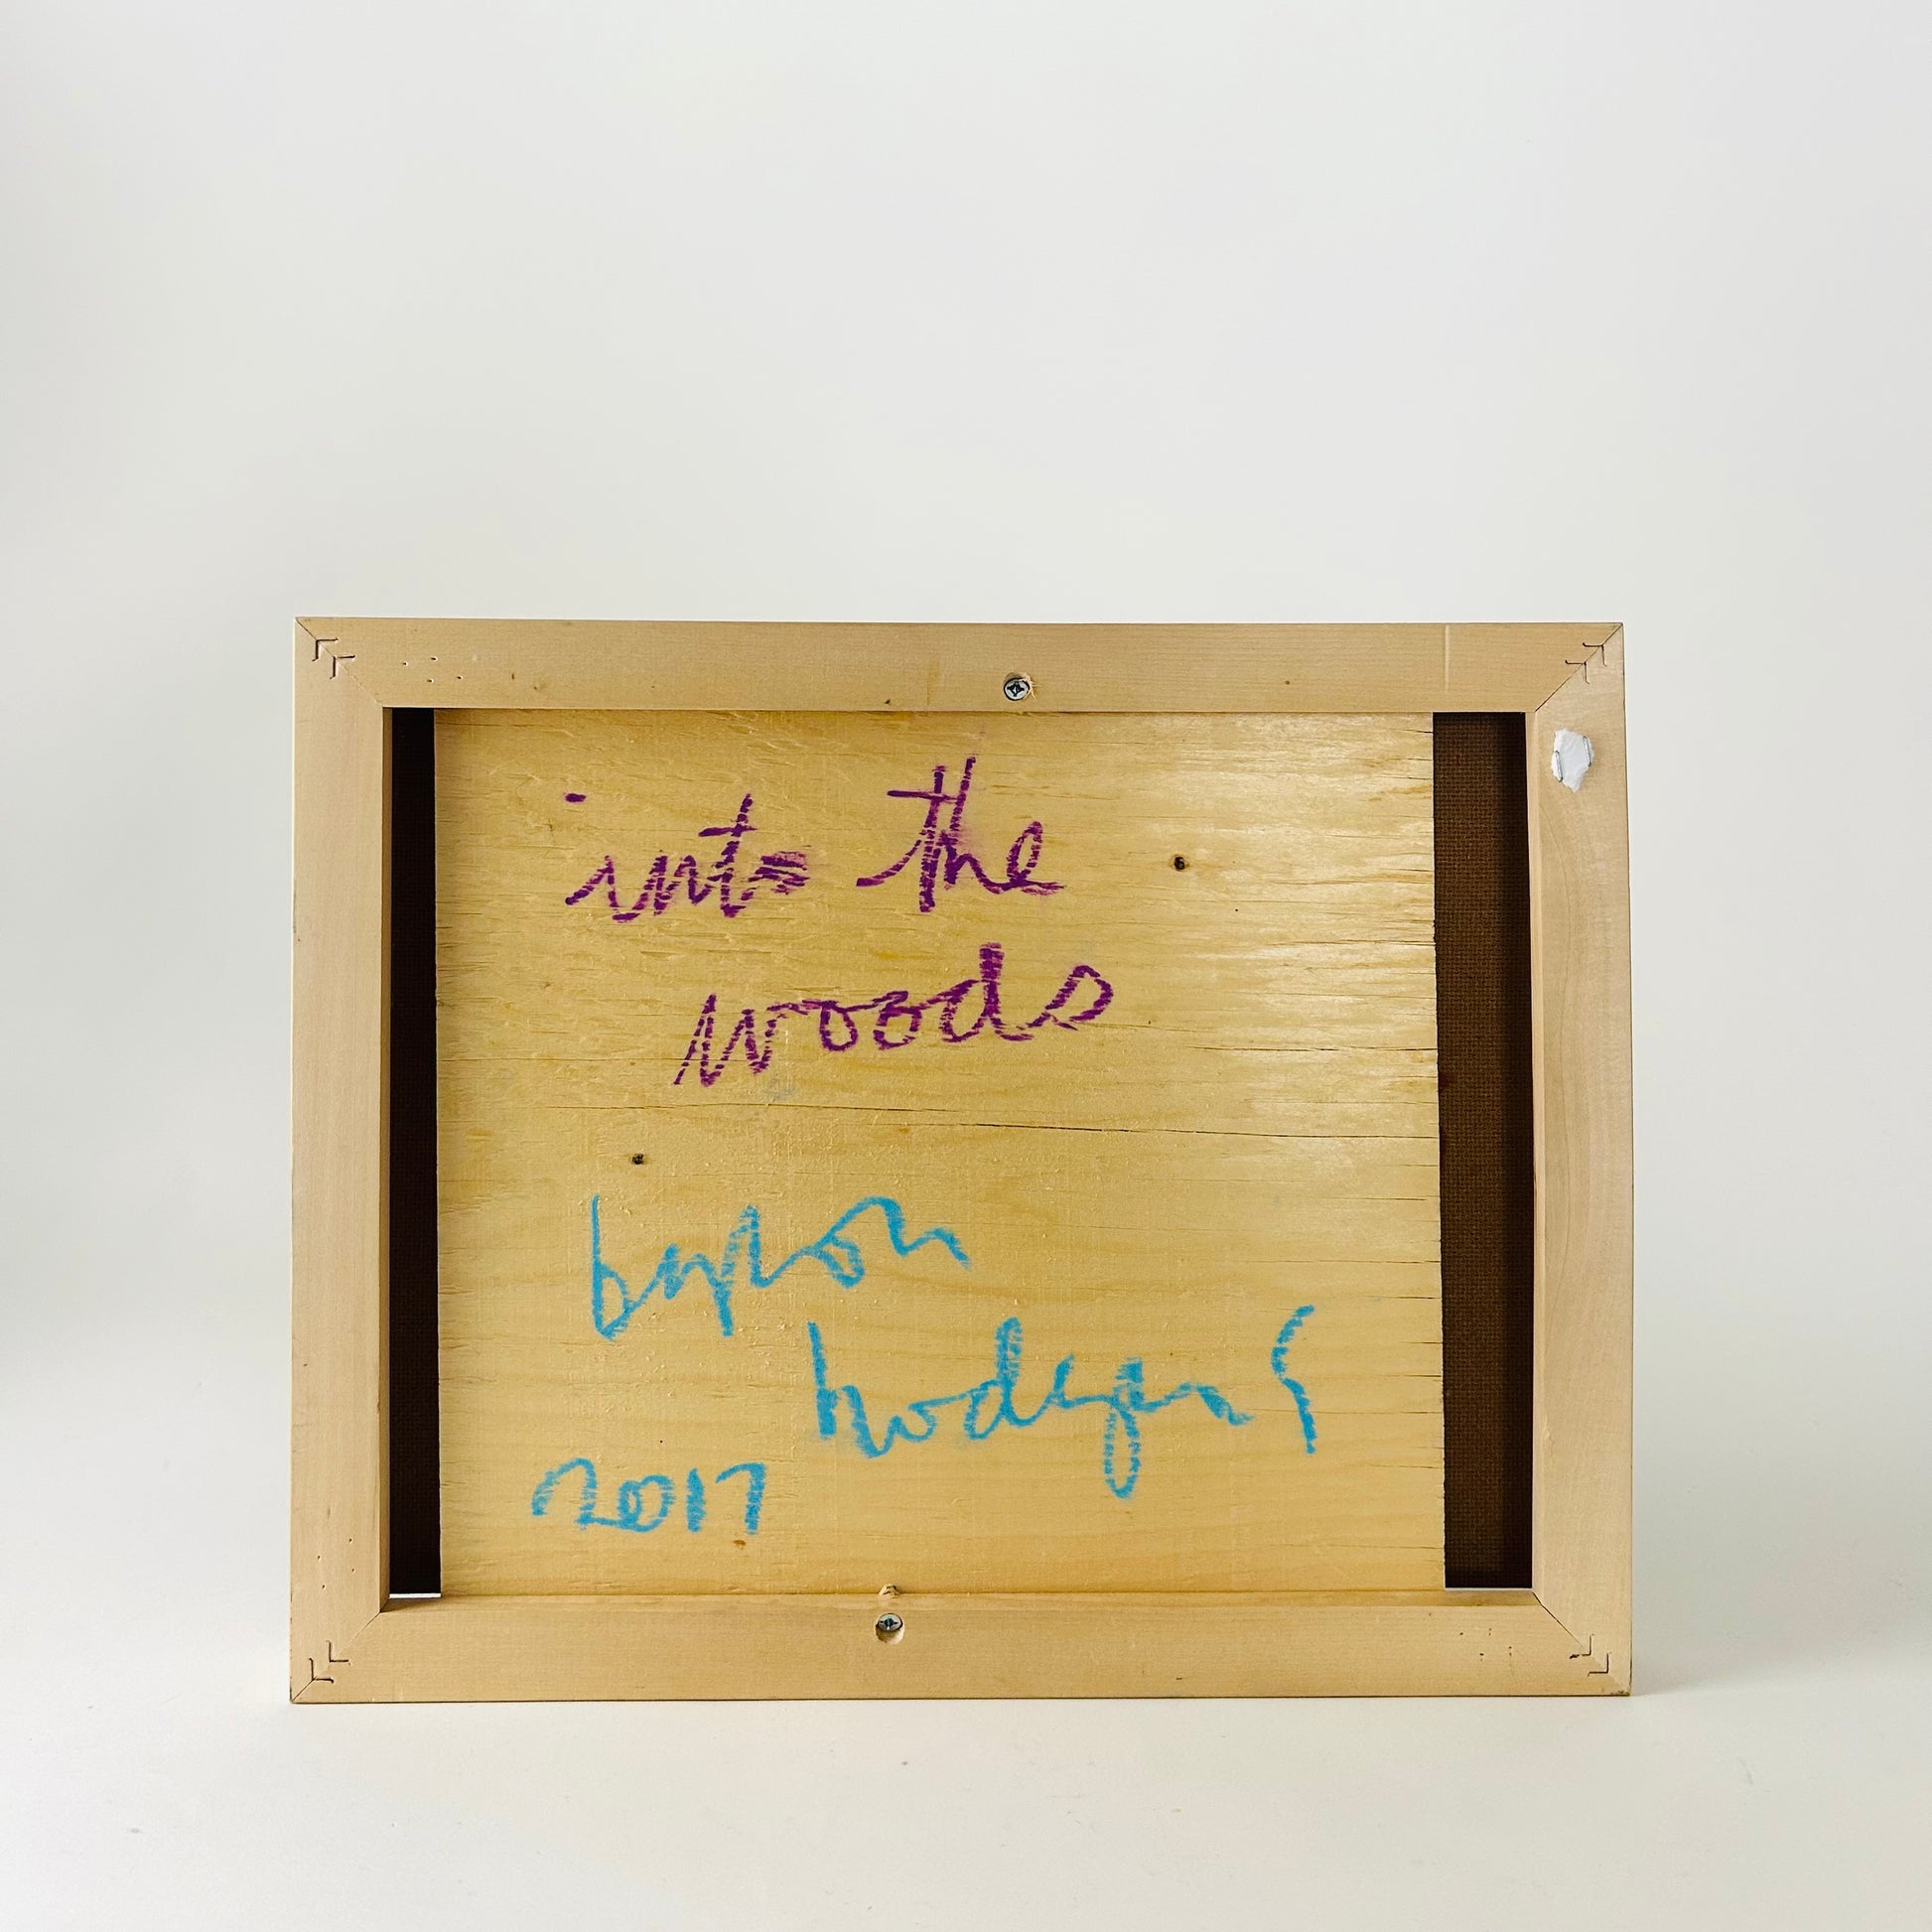 into the
woods
byron
hodgins
2017